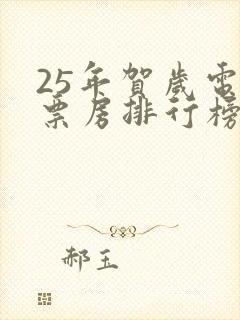 25年賀歲電
票房排行榜
郝玉